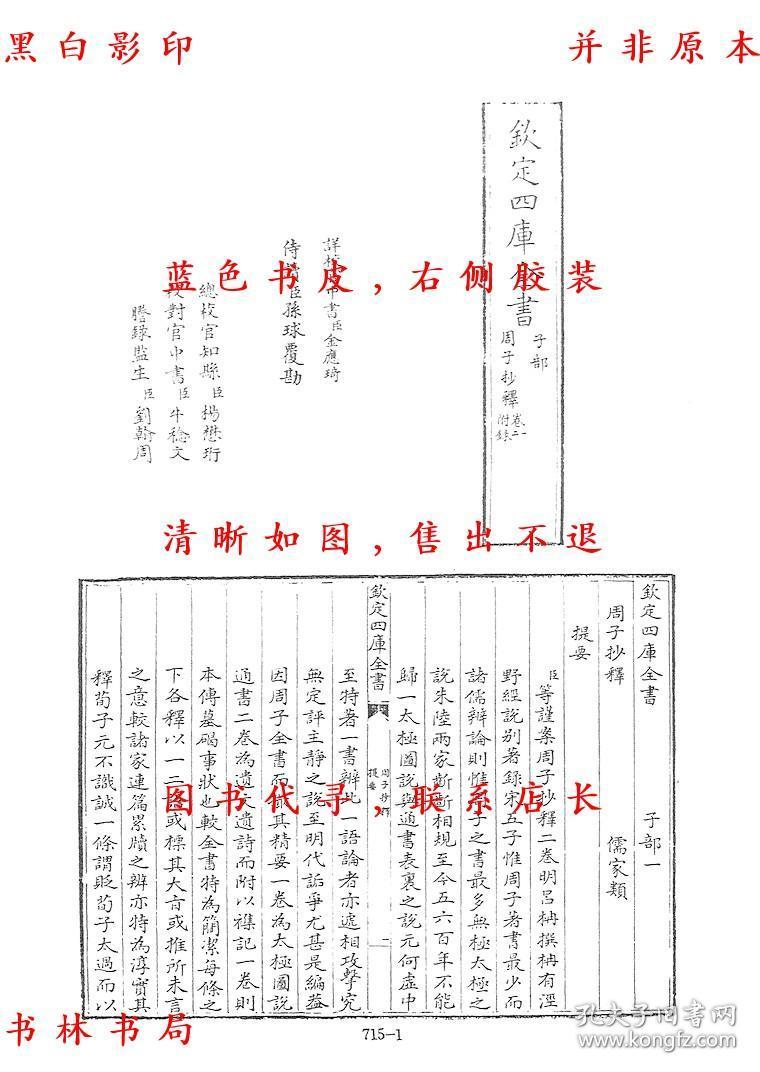 黑白影印
并非原本
欽定四庫全書
子部
周子抄釋
卷一二
附錄
詳校官中書臣金應琦
侍讀臣孫球覆勘
總校官知縣臣楊懋珩
校對官中書臣牛稔文
謄錄監生臣劉翰周
蓝色书皮，右侧胶装
清晰如图，售出不退
欽定四庫全書 子部一
周子抄釋 儒家類
提要
臣等謹案周子抄釋二卷明呂柟撰柟有涇
野經說别著錄宋五子惟周子著書最少而
諸儒辯論則惟周子之書最多無極太極之
說朱陸兩家齗齗相規至今五六百年不能
歸一太極圖說與通書表裏之說元何虛中
欽定四庫全書
周子抄釋
提要
一
至特著一書辯此一語論者亦遞相攻擊究
無定評主靜之說至明代詬爭尤甚是編葢
因周子全書而最其精要一卷為太極圖說
通書二卷為遺文遺詩而附以襍記一卷則
本傳墓碣事狀也較全書特為簡潔每條之
下各釋以一二語或標其大㫖或推所未言
之意較諸家連篇累牘之辨亦特為淳實其
釋荀子元不識誠一條謂貶荀子太過而以
图书代寻，联系店长
书林书局
715-1
孔夫子旧书网
www.kongfz.com